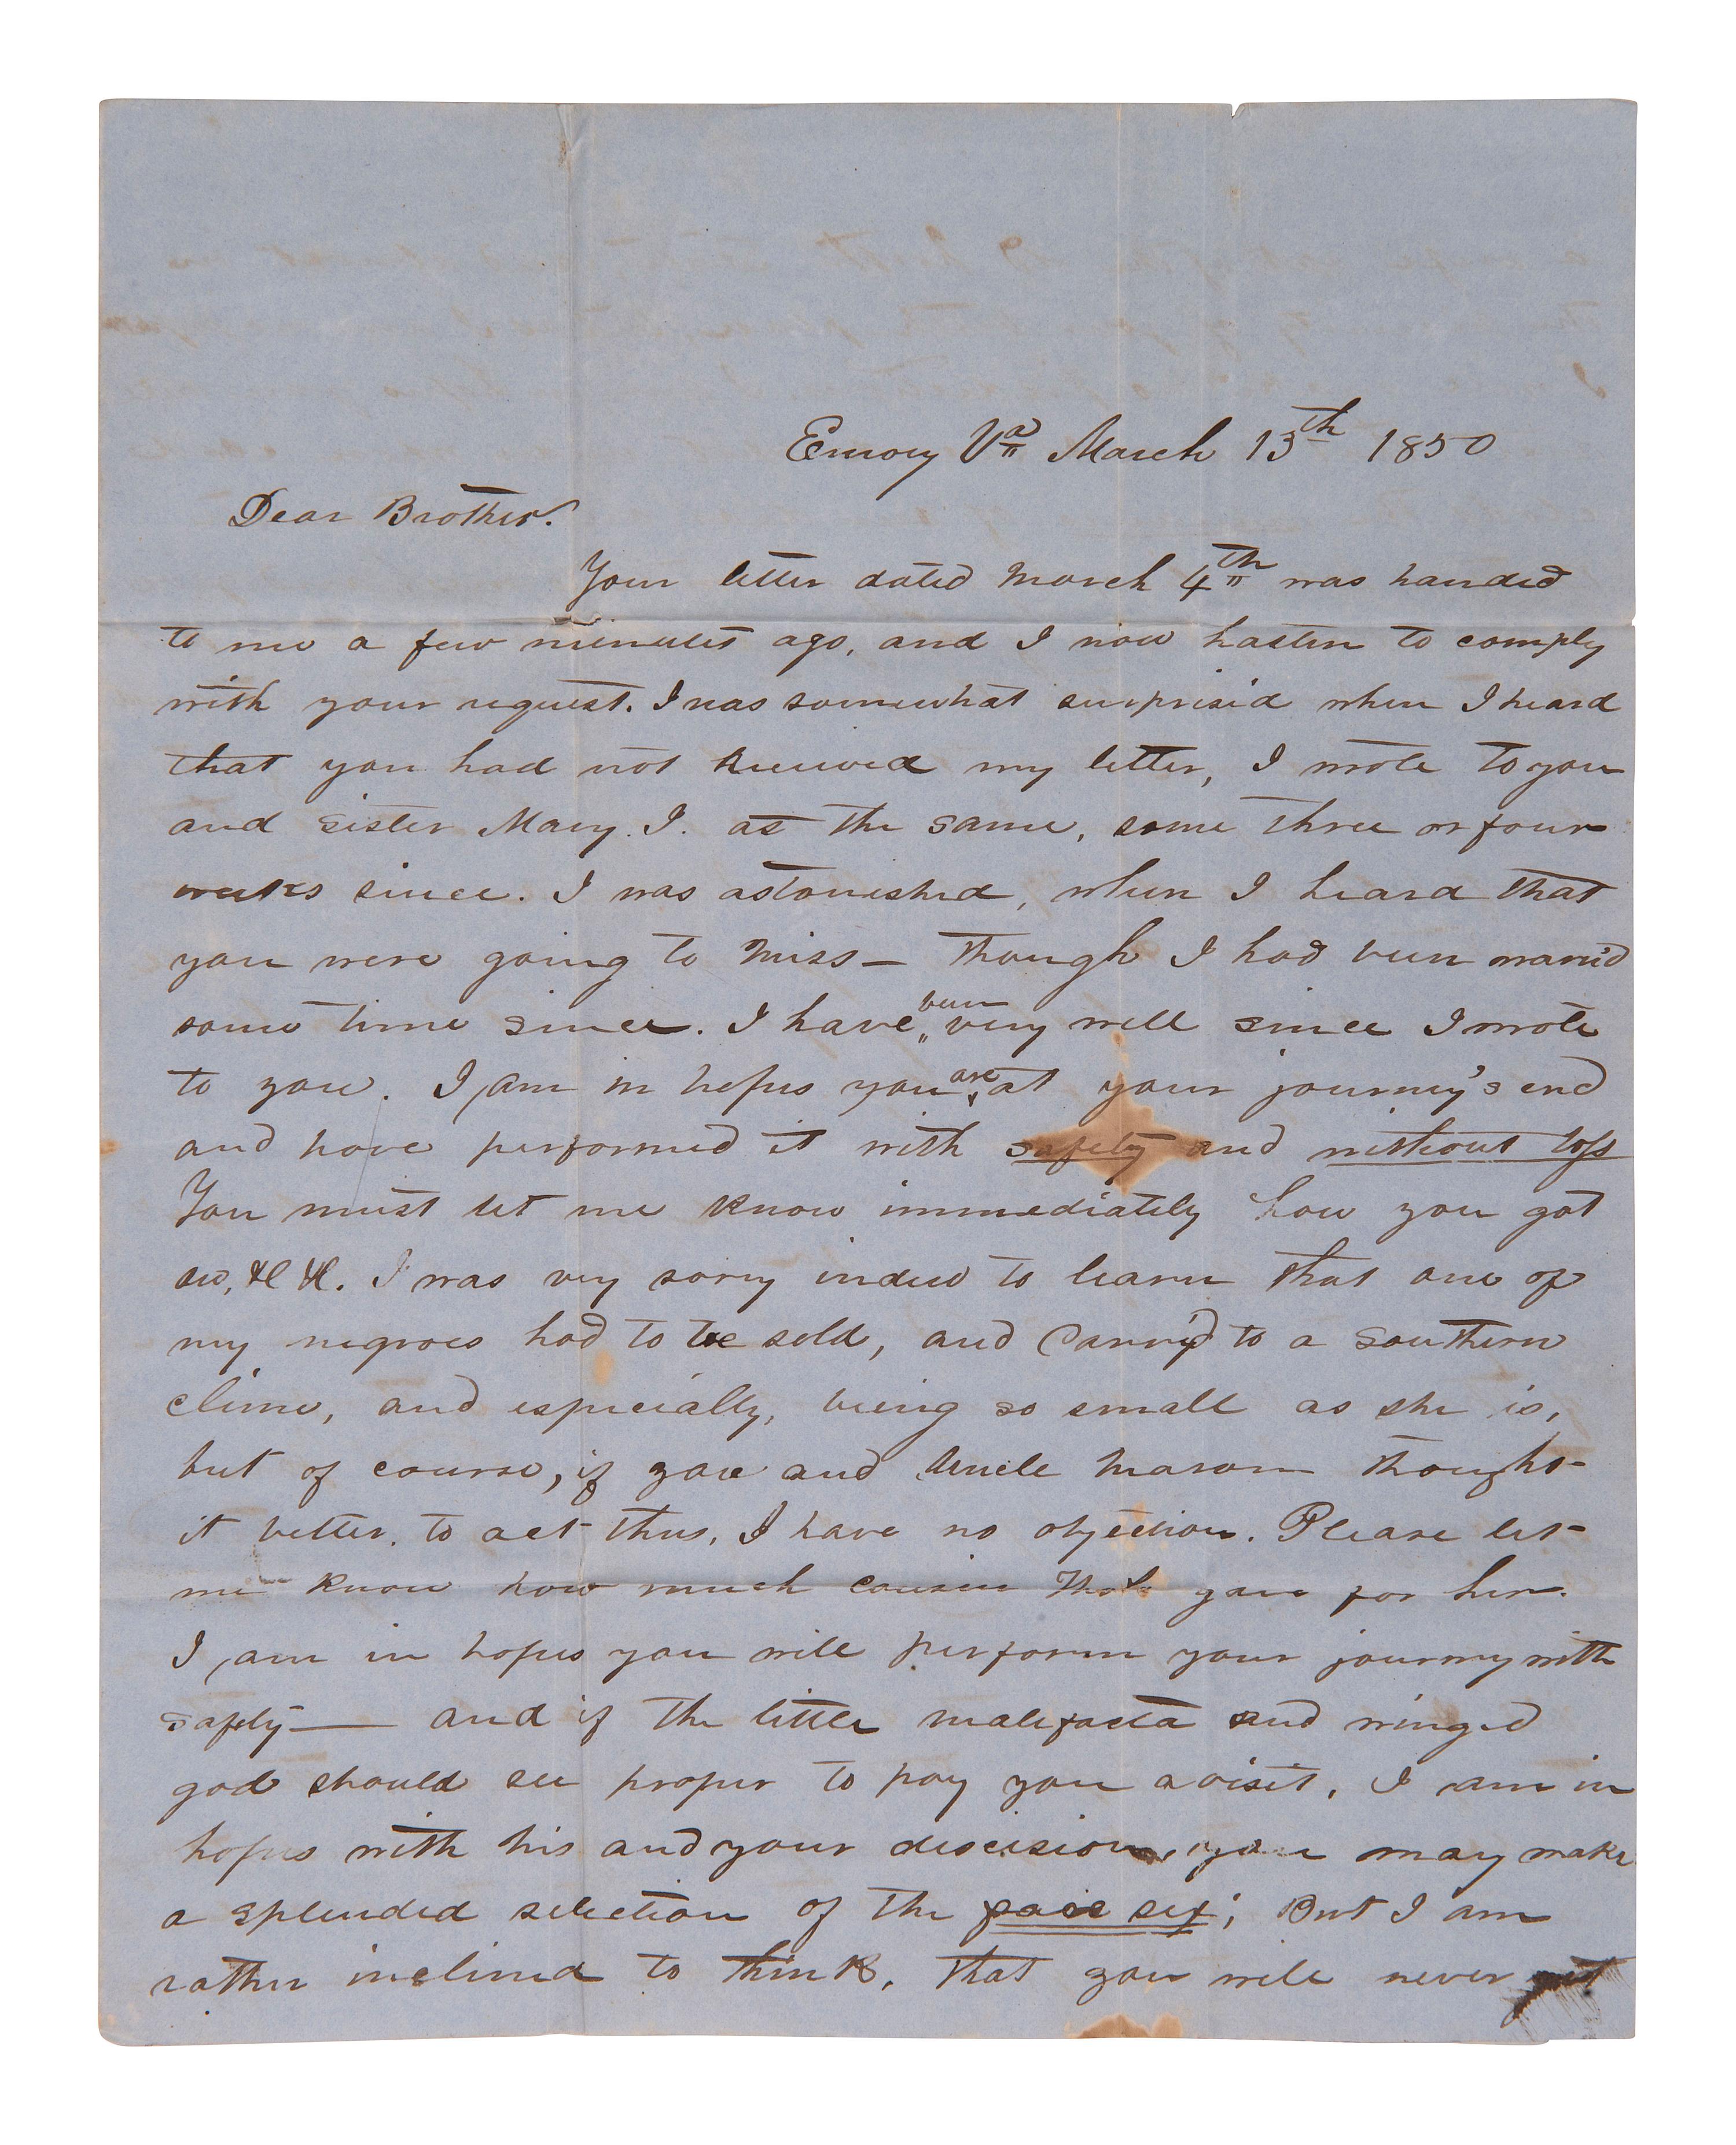 Emory Va March 13th 1850
Dear Brother.
Your letter dated March 4th was handed
to me a few minutes ago, and I now hasten to comply
with your request. I was somewhat surprised when I heard
that you had not received my letter, I wrote to you
and sister Mary. J. at the same, some three or four
weeks since. I was astonished, when I heard that
you were going to Miss— though I had been warn'd
some time since. I have been very well since I wrote
to you. I am in hopes you are at your journey's end
and have performed it with safety and without loss
You must let me know immediately how you got
on, &c &c. I was very sorry indeed to learn that one of
my negroes had to be sold, and carry'd to a southern
clime, and especially, being so small as she is,
but of course, if you and Uncle Mason thought
it better. to act thus, I have no objection. Please let
me know how much cousin gave for her.
I am in hopes you will perform your journey with
safety— and if the little malefacta and winged
god should see proper to pay you a visit, I am in
hopes with his and your discision, you may make
a splended selection of the fair sex; But I am
rather inclined to think, that you will never get